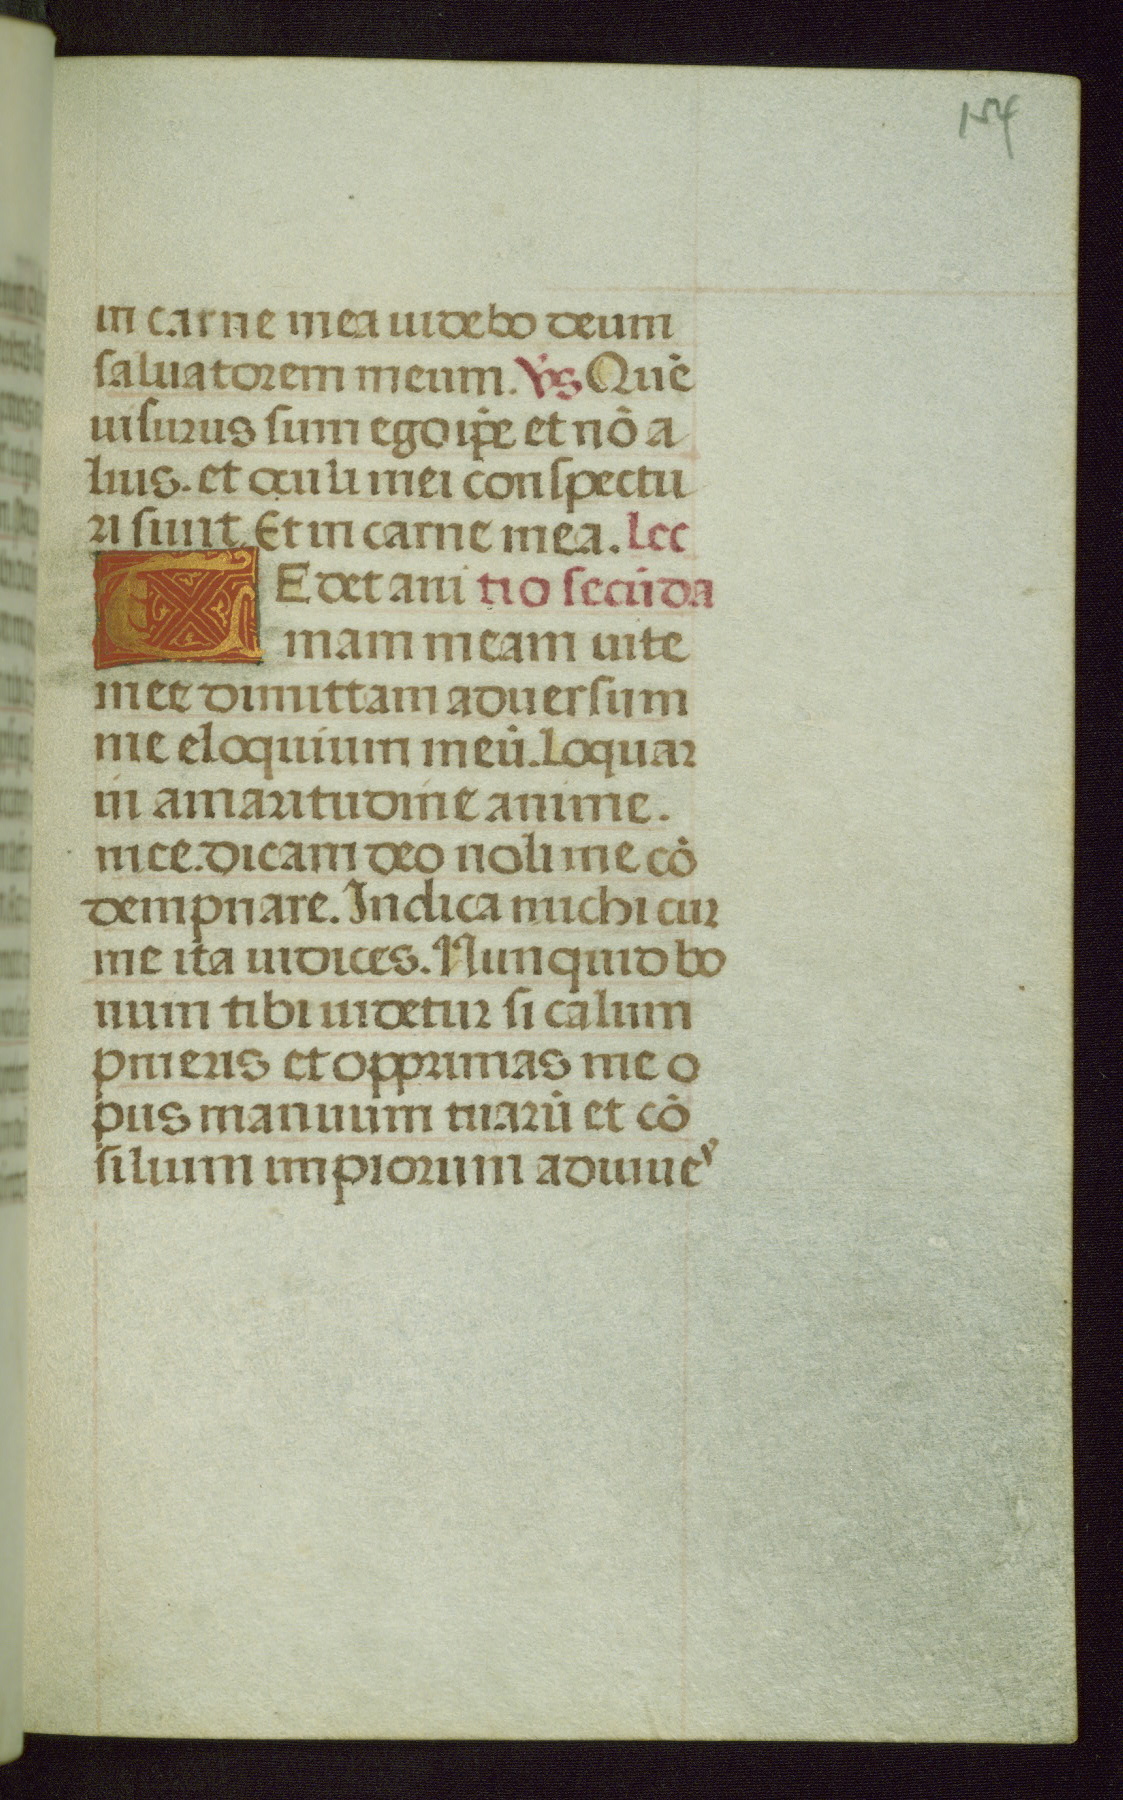 154
in carne mea uidebo deum
saluatorem meum. V̓s Quē
uisurus sum ego ip̄e et nō a
lius. et oculi mei conspectu
ri sunt. Et in carne mea. Lec
TEdet ani tio secūda
mam meam uite
mee dimittam aduersum
me eloquium meū. Loquar
in amaritudine anime.
mee. dicam deo noli me cō
dempnare. Indica michi cur
me ita iudices. Nunquid bo
num tibi uidetur si calum
pnieris et opprimas me o
pus manuum tuarū et cō
silium impiorum adiuue